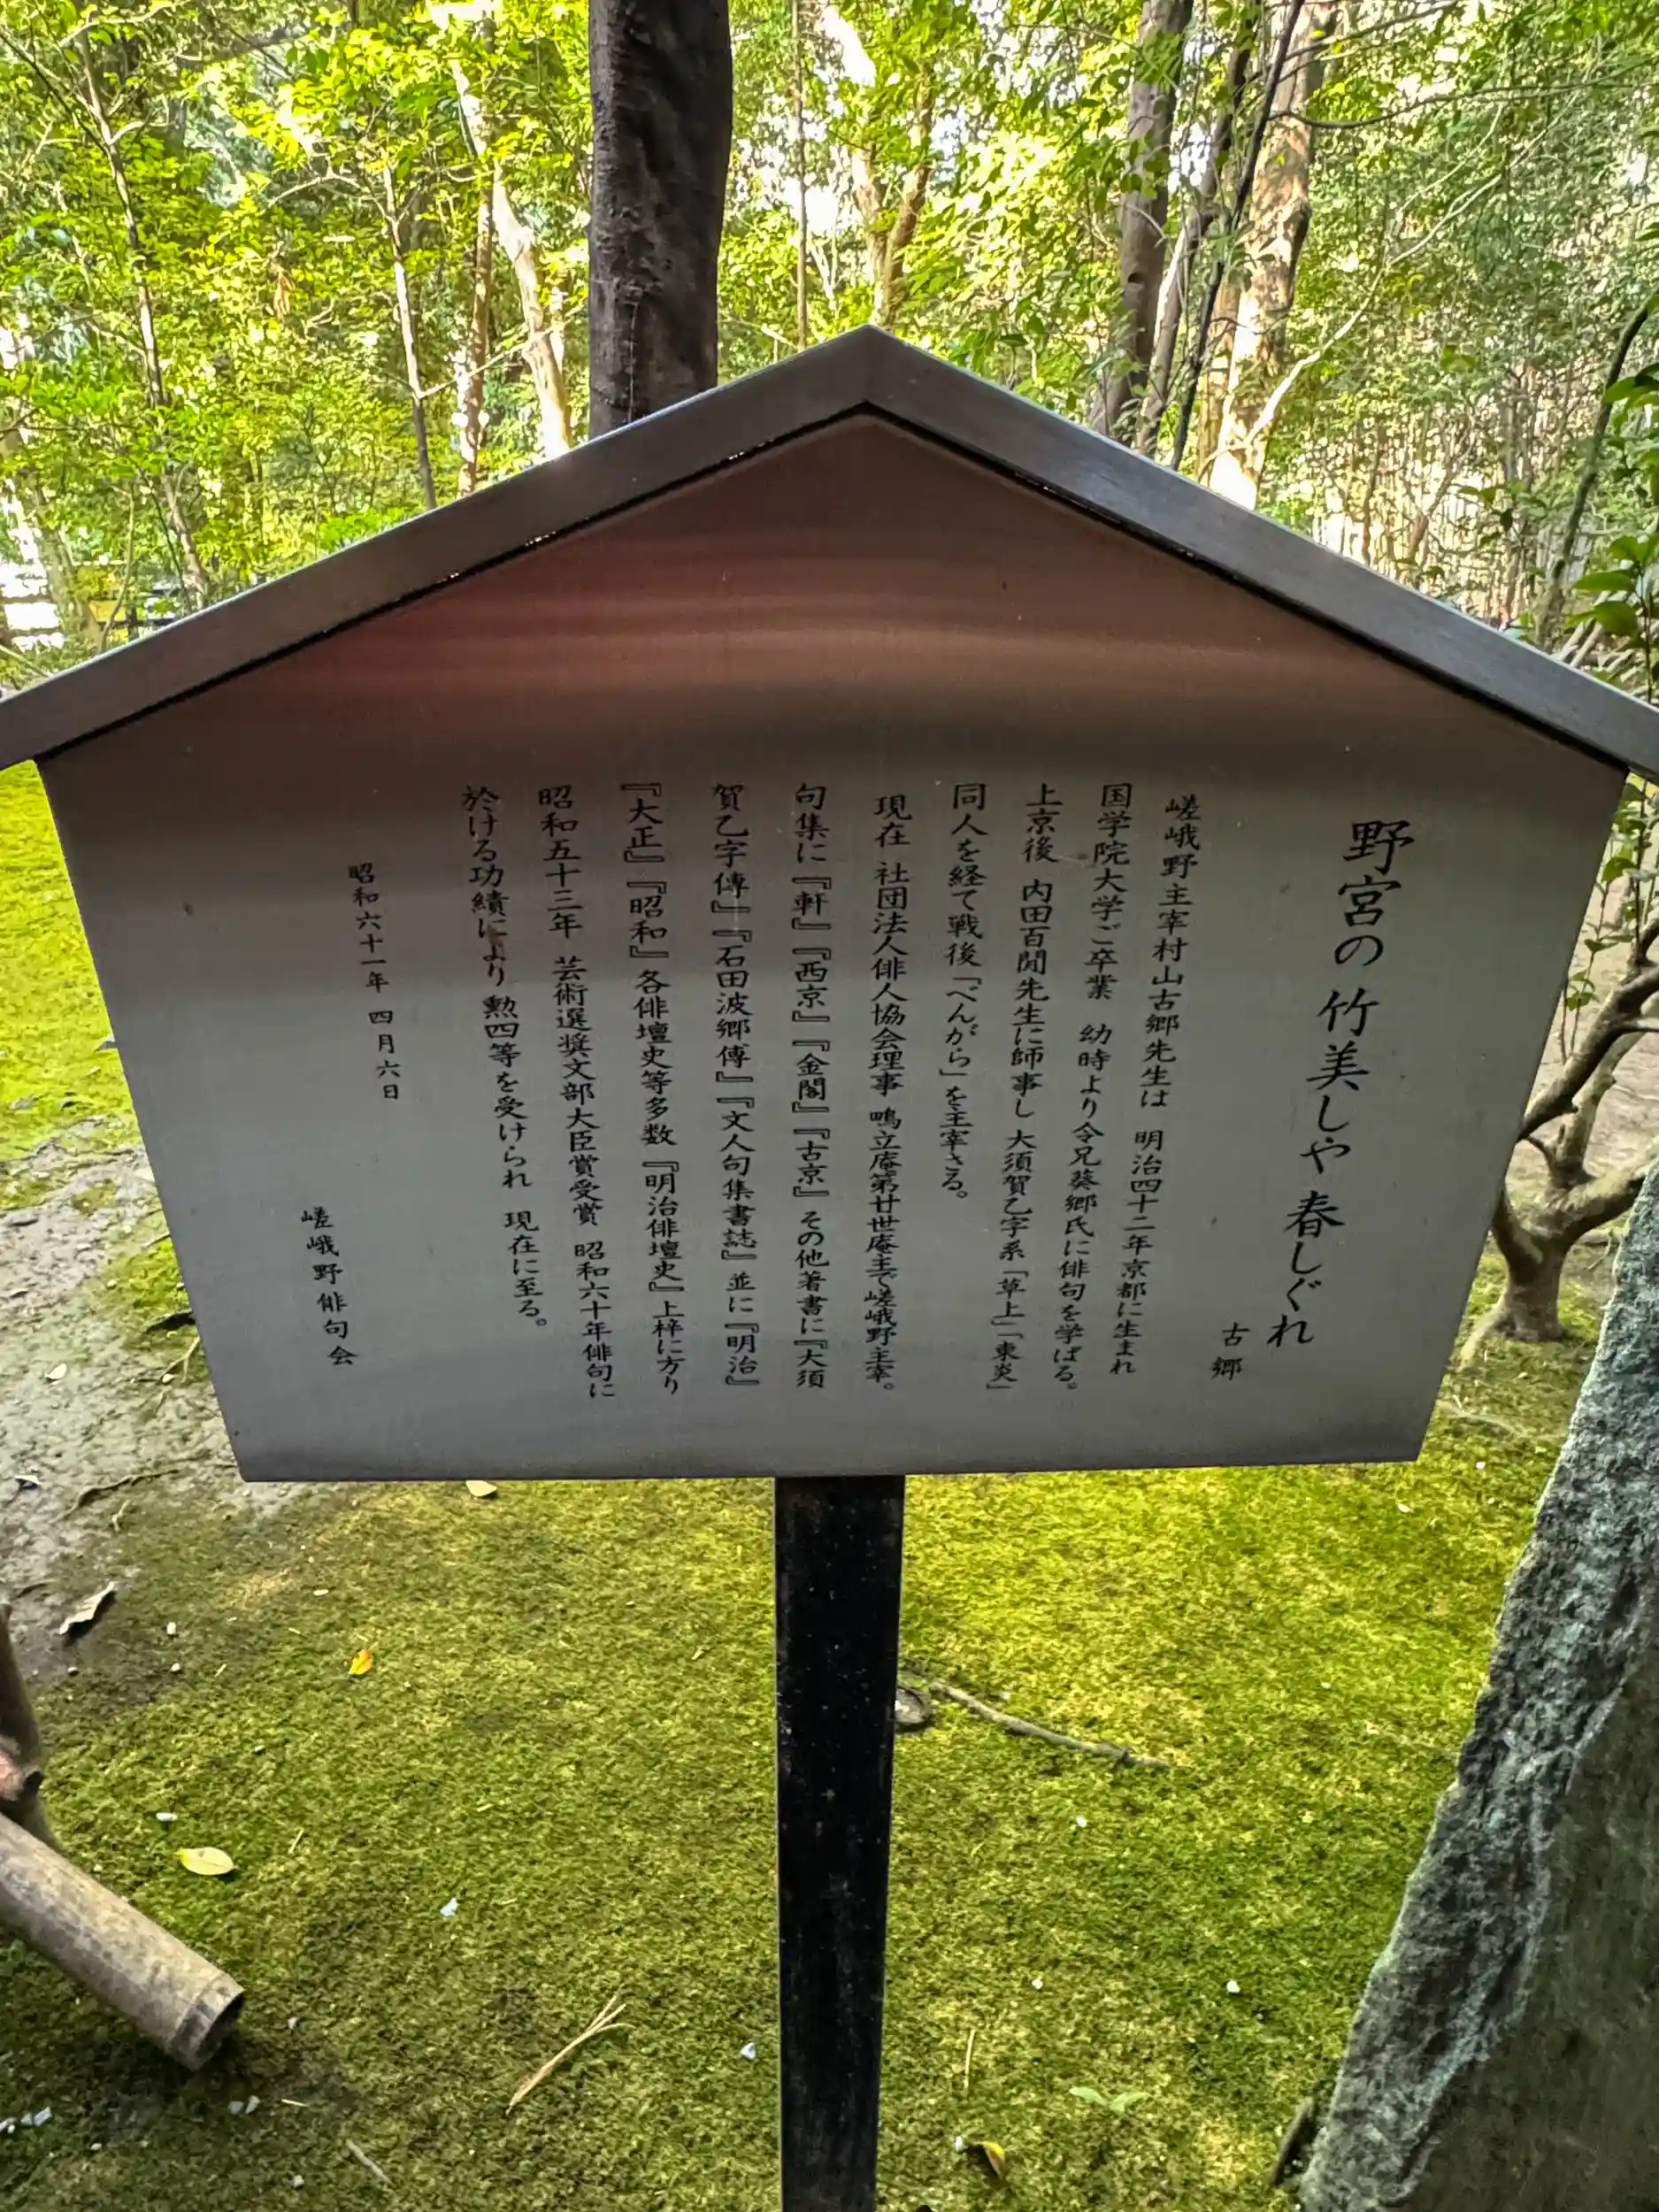 野宮の竹美しや春しぐれ
古郷
嵯峨野主宰村山古郷先生は 明治四十二年京都に生まれ
国学院大学ご卒業 幼時より令兄葵郷氏に俳句を学ばる。
上京後 内田百閒先生に師事し 大須賀乙字系「草上」「東炎」
同人を経て戦後「べんがら」を主宰さる。
現在 社団法人俳人協会理事 鴫立庵第廿世庵主で嵯峨野主宰。
句集に『軒』『西京』『金閣』『古京』その他著書に『大須
賀乙字傳』『石田波郷傳』『文人句集書誌』並に『明治』
『大正』『昭和』各俳壇史等多数 『明治俳壇史』上梓に方り
昭和五十三年 芸術選奨文部大臣賞受賞 昭和六十年俳句に
於ける功績により勲四等を受けられ 現在に至る。
昭和六十一年 四月六日
嵯峨野俳句会